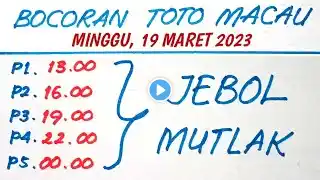 BOCORAN TOTO MACAU
MINGGU, 19 MARET 2023
P1. 13.00
P2. 16.00
P3. 19.00
P4. 22.00
P5. 00.00
JEBOL
MUTLAK